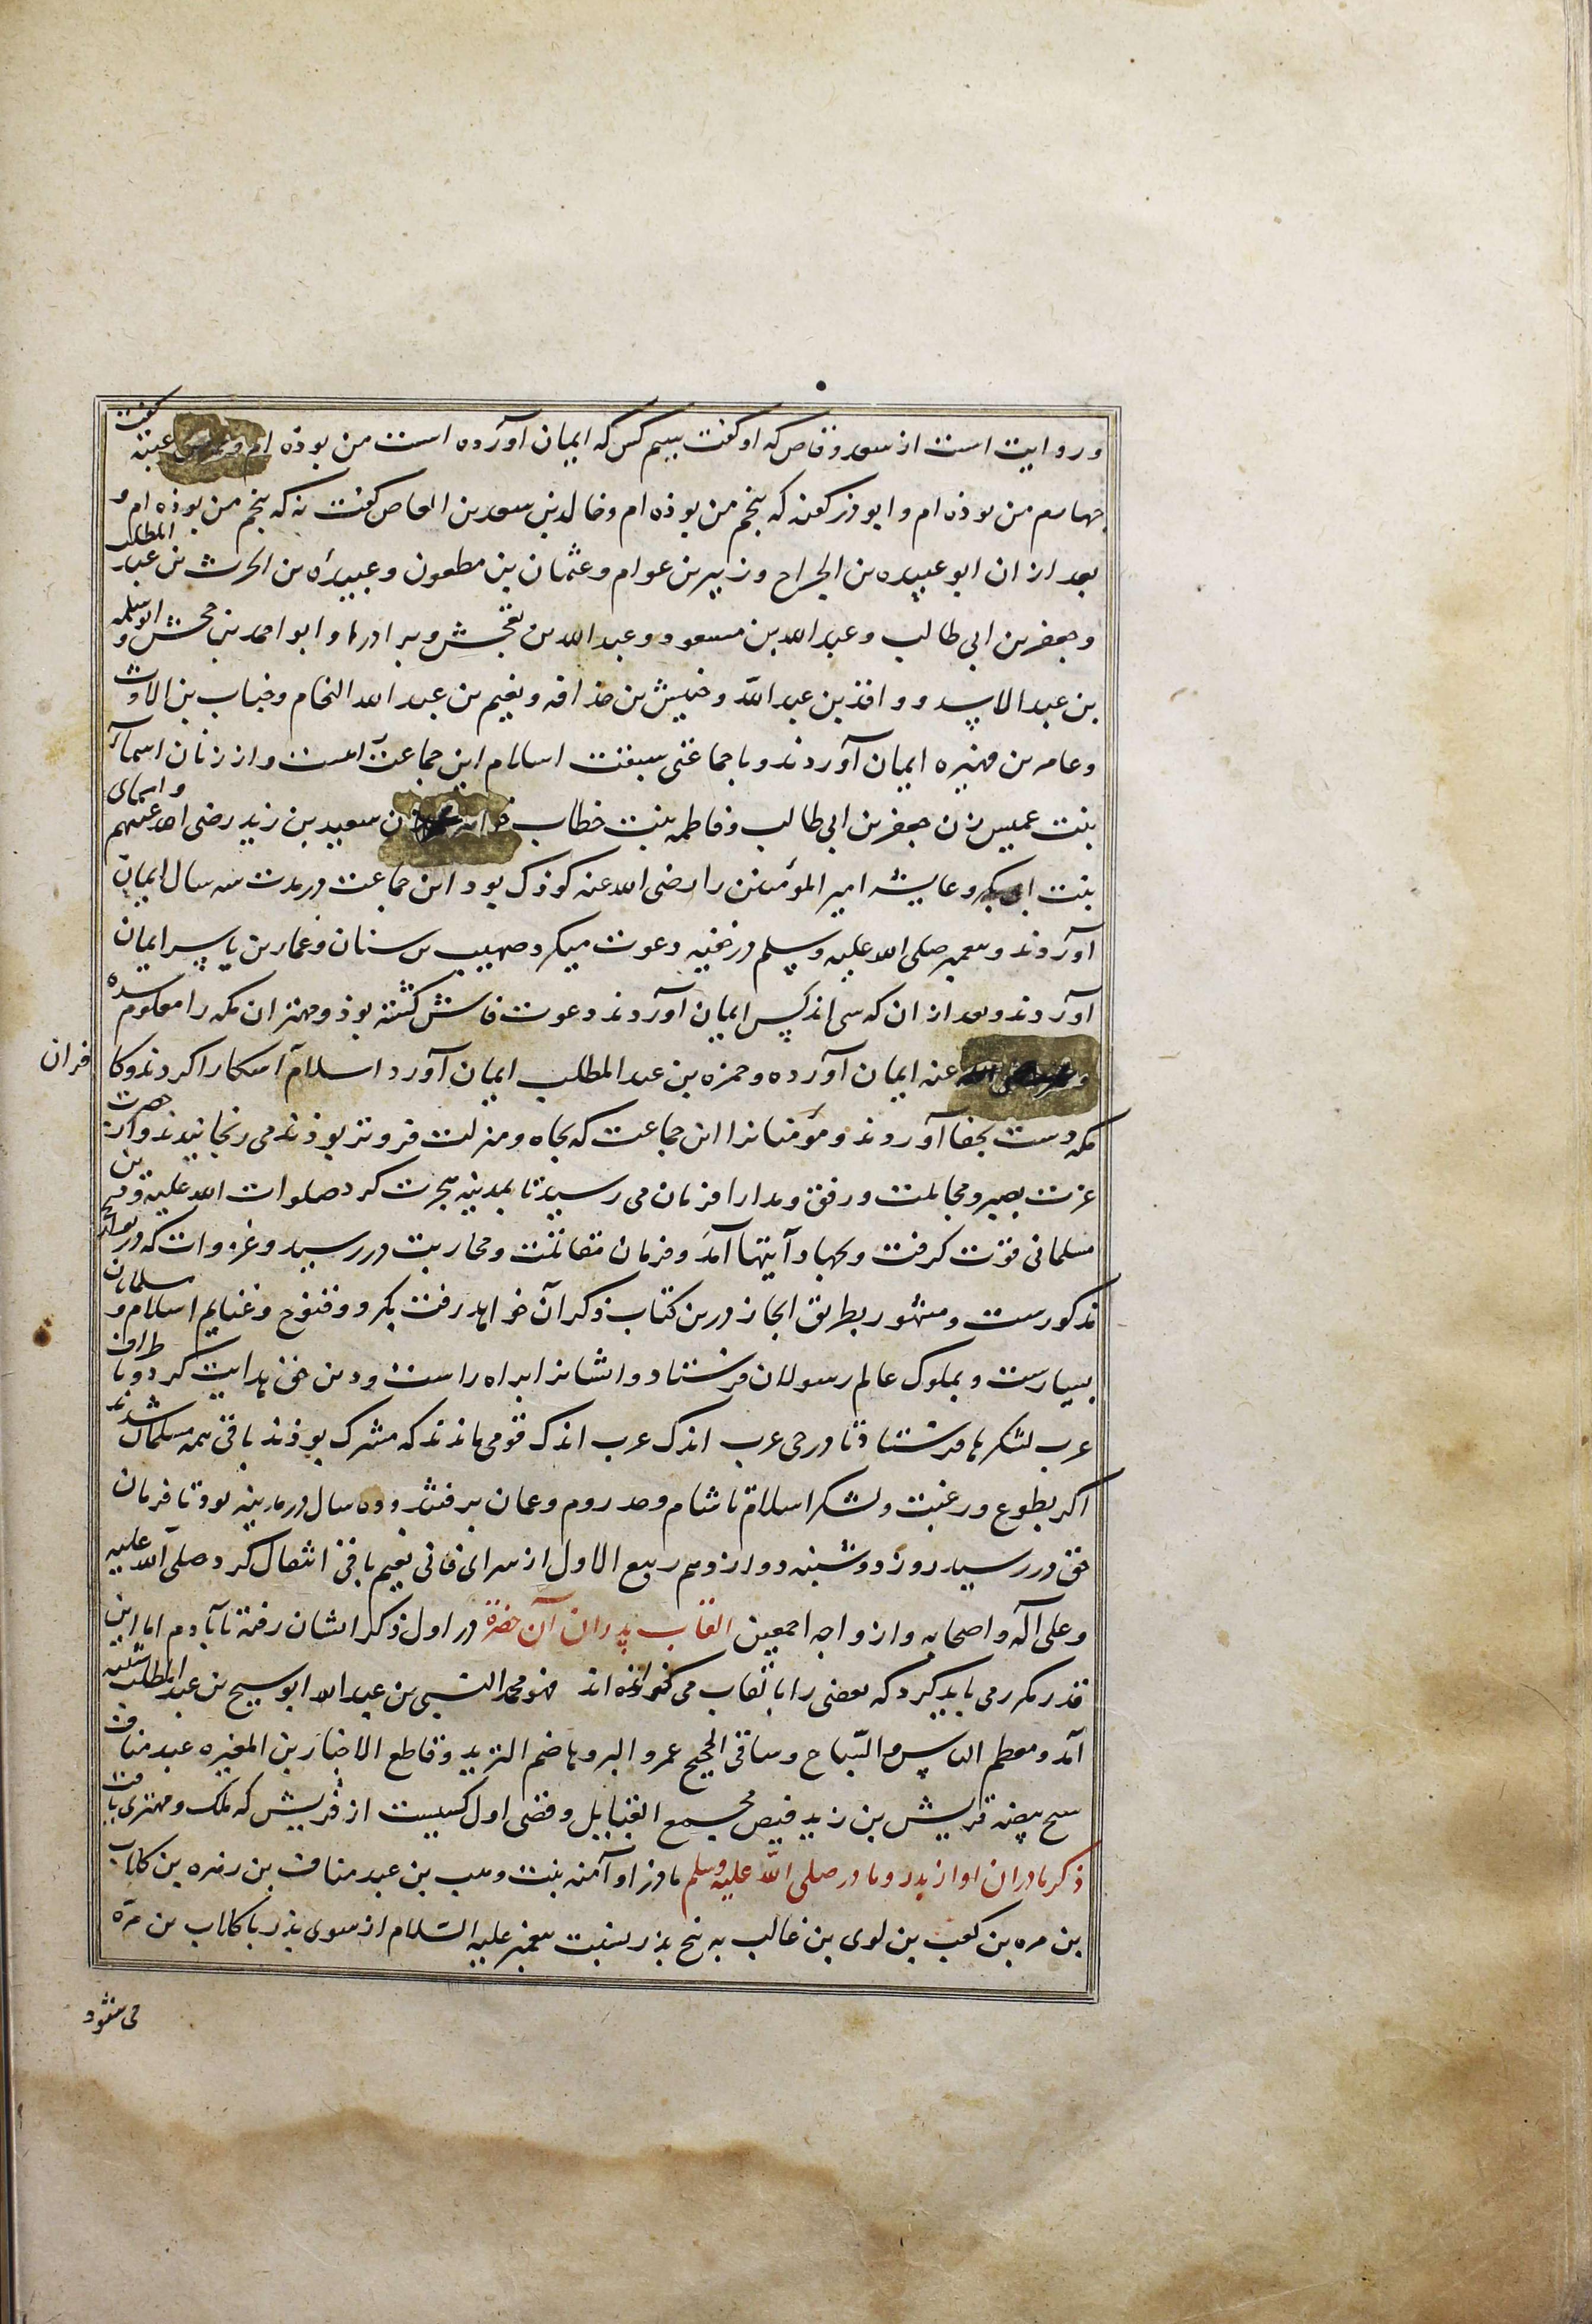 و روایت است از سعد وقاص که او گفت سیم کس که ایمان آورده است من بوذه ام عتبه گفت
چهارم من بوذه ام و ابوذر گفت که پنجم من بوذه ام و خالد بن سعد بن العاص گفت نه که پنجم من بوذه ام و
بعد از ان ابو عبیده بن الجراح و زبیر بن عوام و عثمان بن مطعون و عبیداه بن الحرث بن عبد المطلب
و جعفر بن ابی طالب و عبد الله بن مسعود و عبد الله بن جحش و برادرها و ابو احمد بن جحش و ابوسلمه
بن عبد الاسد و واقذ بن عبد الله و خنیش بن حذافه و نعیم بن عبد الله النحام و خباب بن الارت
و عامر بن فهیره ایمان آوردند و با جماعتی سبقت اسلام این جماعت است و از زنان اسماء
بنت عمیس زن جعفر بن ابی طالب و فاطمه بنت خطاب زن سعید بن زید رضی الله عنهم و اسمای
بنت ابی بکر و عایشه امیر المؤمنین را رضی الله عنه کوذک بود این جماعت در مدت سه سال ایمان
آوردند و پیغمبر صلی الله علیه وسلم در خفیه دعوت میکرد صهیب بن سنان و عمار بن یاسر ایمان
آوردند و بعد از ان که سی اند کس ایمان آوردند دعوت فاش کشته بوذ و مهتران مکه را معلوم شده
عنه ایمان آورده و حمزه بن عبد المطلب ایمان آورد اسلام آشکارا کردند و کافران
مکه دست بجفا آوردند و مؤمنانرا این جماعت که بجاه و منزلت فروتر بوذند می رنجانیدند و از حضرت
عزت بصبر و مجاملت و رفق و مدارا فرمان می رسید تا بمدینه هجرت کرد صلوات الله علیه و دین
مسلمانی قوت کرفت و بجهاد آیتها آمد و فرمان مقاتلت و محاربت در رسید و غزوات که در تواریخ
مذکورست و مشهور بطریق ایجاز درین کتاب ذکر آن خواهد رفت بکرد و فتوح و غنایم اسلام و مسلمانان
بسیارست و بملوک عالم رسولان فرستاد و ایشانرا براه راست و دین حق هدایت کرد و با طراف
عرب لشکرها فرستاد تا در حی عرب اندک عرب اندک قومی ماندند که مشرک بوذند باقی همه مسلمان شدند
اکر بطوع و رغبت و لشکر اسلام تا شام و حد روم و عمان برفتند و ده سال در مدینه بود تا فرمان
حق در رسید روز دوشنبه دوازدهم ربیع الاول از سرای فانی بنعیم باقی انتقال کرد صلی الله علیه
و علی آله و اصحابه و ازواجه اجمعین القاب پدران آن حضرة در اول ذکر ایشان رفته تا آدم اما این
قدر مکرر می باید کرد که بعضی را بالقاب می خوانده اند فهو محمد النبی بن عبد الله ابو سیح بن عبد المطلب شیبه
آمد و مطعم الناس و السباح و ساقی الحجیج عمرو البر و هاضم الثرید و قاطع الاخبار بن المغیره عبد مناف
سح بیضه قریش بن زید قیص مجمع القبایل و قصی اول کسیست از قریش که ملک و مهتری یافت
ذکر مادران او از پدر و مادر صلی الله علیه وسلم مادر او آمنه بنت وهب بن عبد مناف بن زهره بن کلاب
بن مره بن کعب بن لوی بن غالب به پنج پذر بنسبت پیغمبر علیه السلام از سوی پذر با کلاب بن مره
می شود